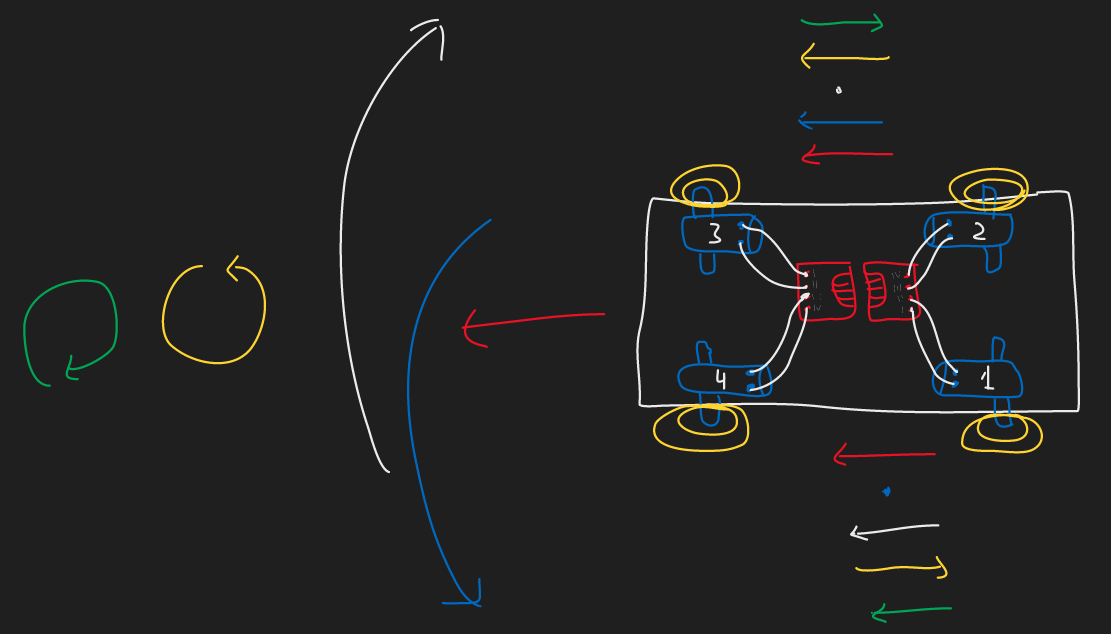 3 2
4 1